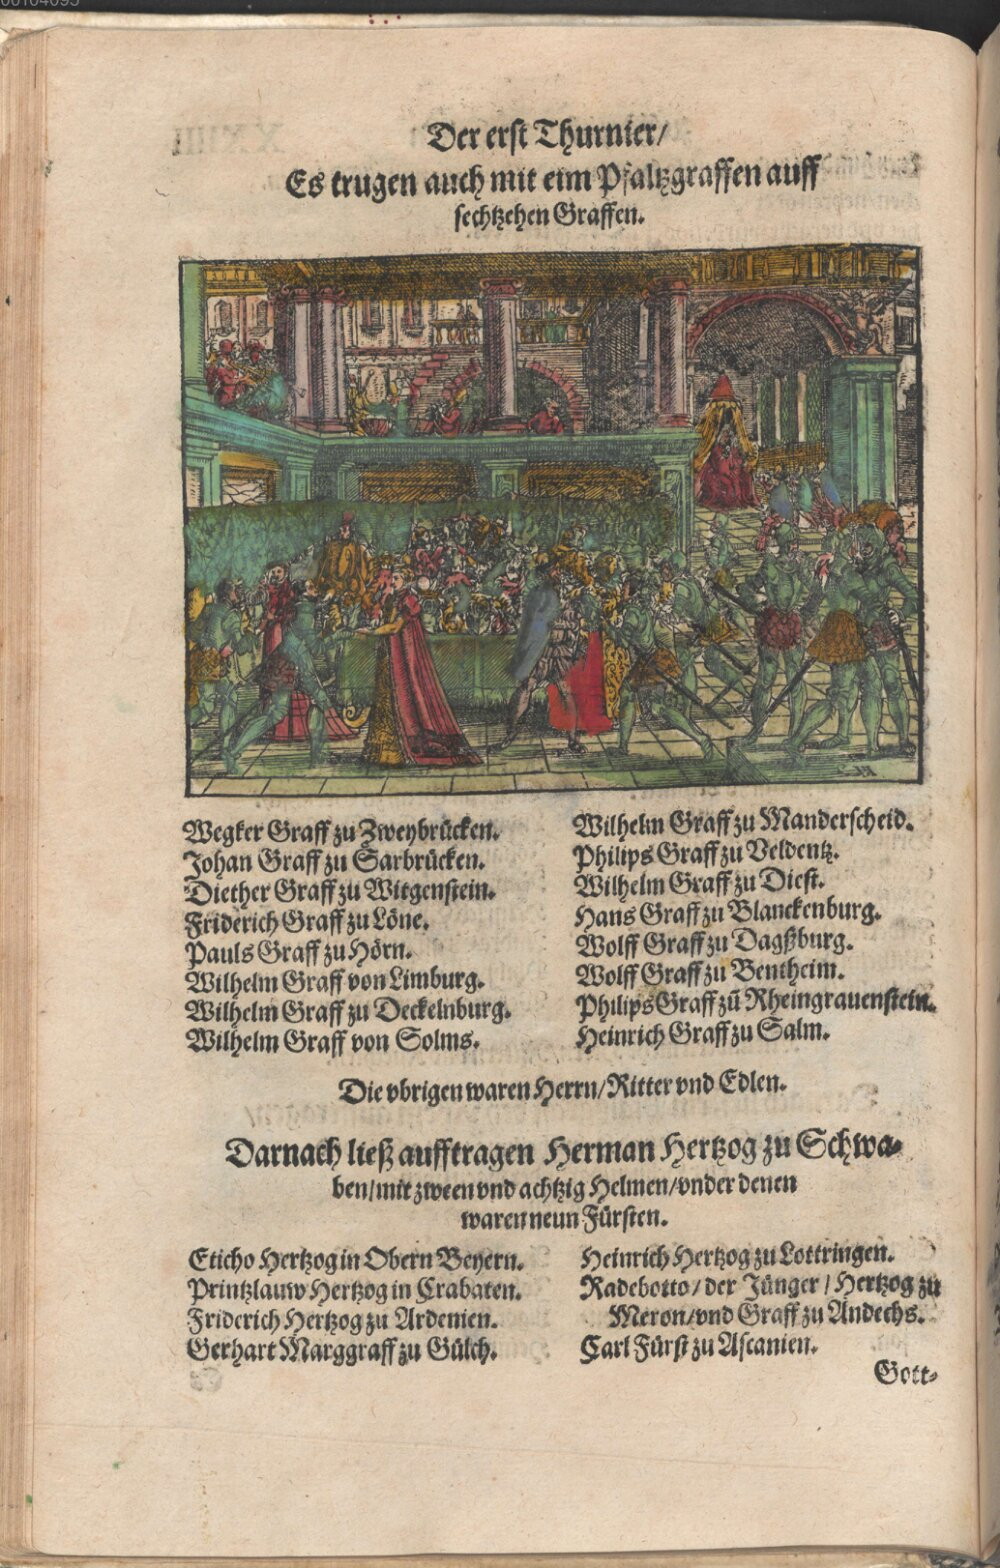 00104095
Der erst Thurnier/
Es trugen auch mit eim Pfaltzgraffen auff
sechtzehen Graffen.
Wegker Graff zu Zweybrücken.
Johan Graff zu Sarbrücken.
Diether Graff zu Witgenstein.
Friderich Graff zu Löne.
Pauls Graff zu Hörn.
Wilhelm Graff von Limburg.
Wilhelm Graff zu Deckelnburg.
Wilhelm Graff von Solms.
Wilhelm Graff zu Manderscheid.
Philips Graff zu Veldentz.
Wilhelm Graff zu Diest.
Hans Graff zu Blanckenburg.
Wolff Graff zu Dagßburg.
Wolff Graff zu Bentheim.
Philips Graff zů Rheingrauenstein.
Heinrich Graff zu Salm.
Die vbrigen waren Herrn/Ritter vnd Edlen.
Darnach ließ aufftragen Herman Hertzog zu Schwa-
ben/mit zween vnd achtzig Helmen/vnder denen
waren neun Fürsten.
Eticho Hertzog in Obern Beyern.
Printzlauw Hertzog in Crabaten.
Friderich Hertzog zu Ardenien.
Gerhart Marggraff zu Gülch.
Heinrich Hertzog zu Lottringen.
Radebotto/der Jünger/Hertzog zu
Meron/vnd Graff zu Andechs.
Carl Fürst zu Ascanien.
Gott-